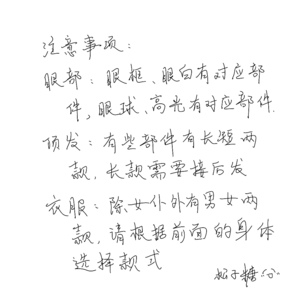 注意事项:
眼部:眼框、眼白有对应部
件,眼球、高光有对应部件.
顶发:有些部件有长短两
款,长款需要接后发
衣服:除女仆外有男女两
款,请根据前面的身体
选择款式
松子糖